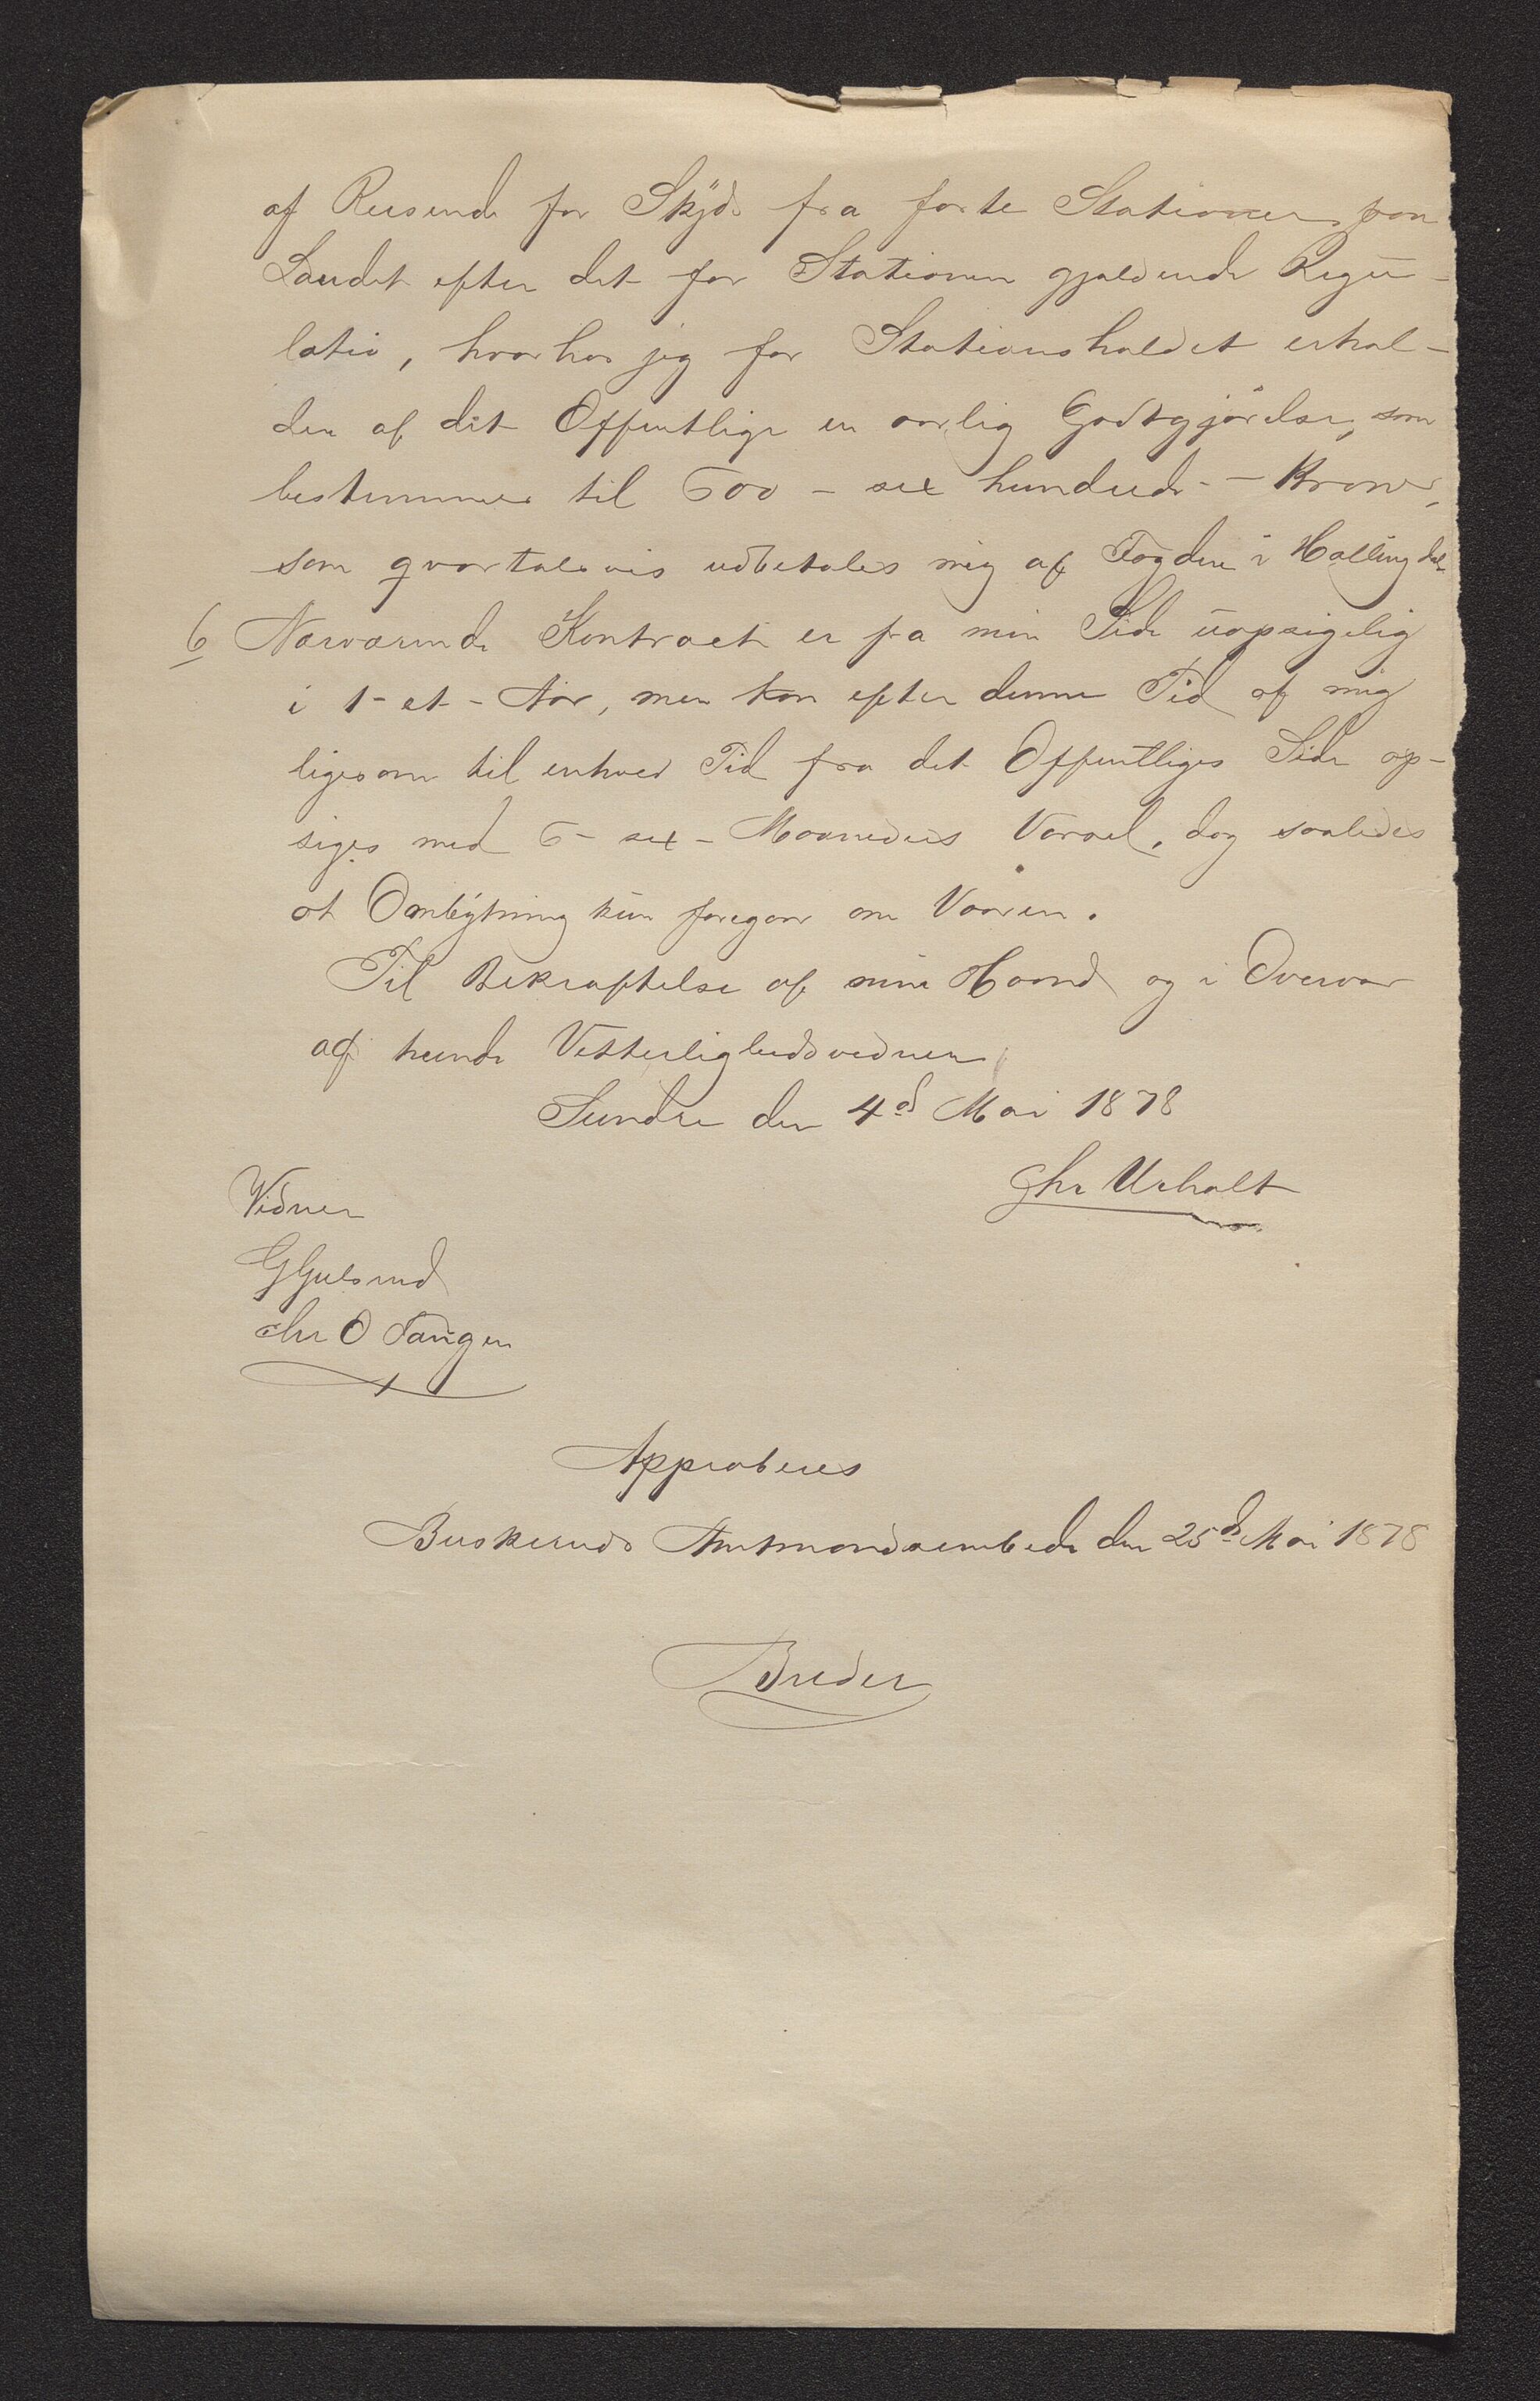 af Reisende for Skyds fra faste Stationer paa
Landet efter det for Stationen gjældende Regu-
lativ, hvorhos jeg for Stationsholdet erhol-
der af det Offentlige en aarlig Godtgjörelse, som
bestemmes til 600 - sex hundrede - Kroner,
som qvartalsvis udbetales mig af Fogden i Hallingdal
6 Nærværende Kontract er fra min Side uopsigelig
i 1 - et - Aar, men kan efter denne Tid af mig
ligesom til enhver Tid fra det Offentliges Side op-
siges med 6 - sex - Maaneders Varsel, dog saaledes
at Ombytning kun foregaar om Vaaren.
Til Bekræftelse af min Haand og i Overvær
af tvende Vitterlighedsvidner
Sundre den 4d Mai 1878
Chr Urholt
Vidner
G Gulsrud
Chr O Tangen
Approberes
Buskeruds Amtmandsembede den 25de Mai 1878
Breder